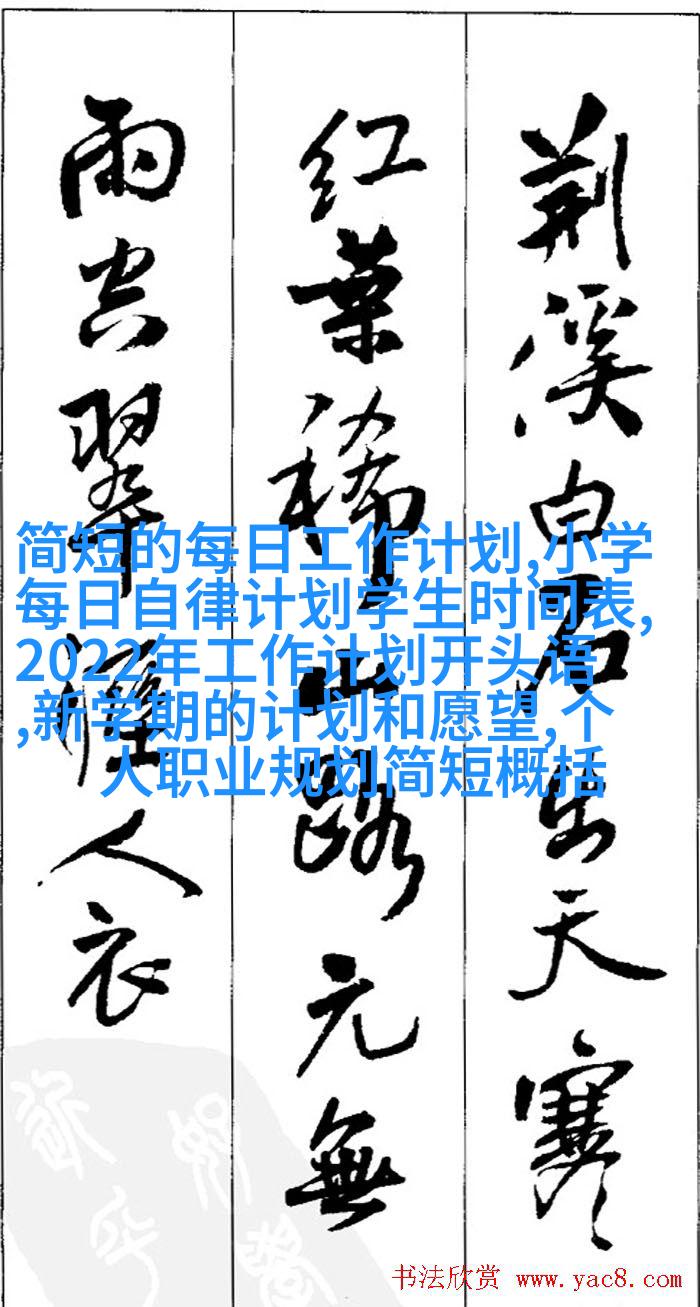 荆溪白石出天寒
红葉稀山路元無
雨空翠濕人衣
简短的每日工作计划,小学
每日自律计划学生时间表,
2022年工作计划开头语
,新学期的计划和愿望,个
人职业规划简短概括
书法欣赏 www.yac8.com